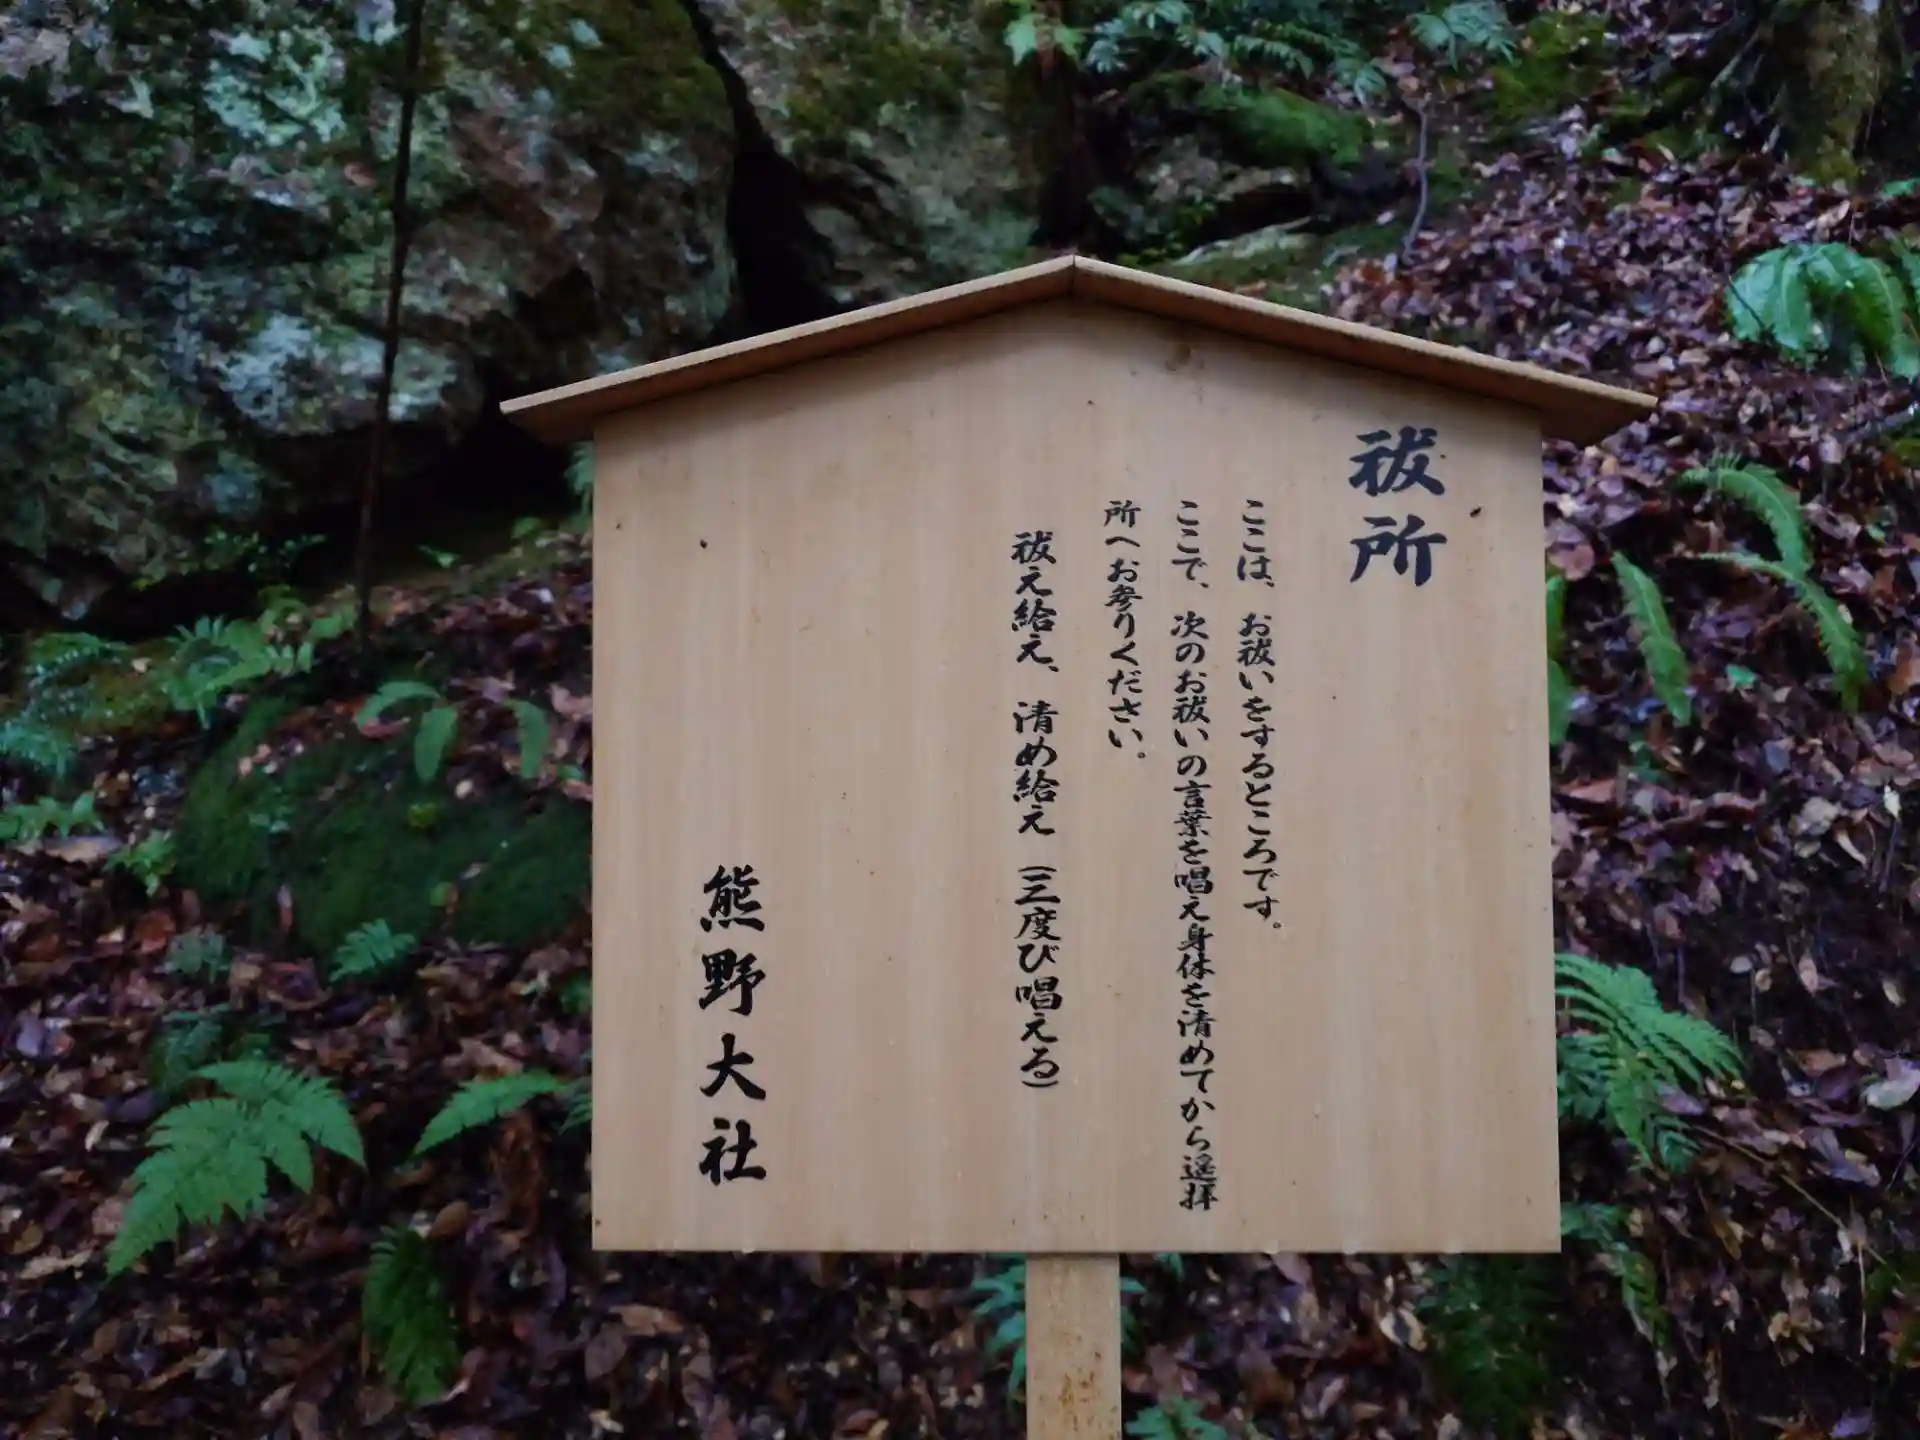 祓所
ここは、お祓いをするところです。
ここで、次のお祓いの言葉を唱え身体を清めてから遥拝
所へお参りください。
祓え給え、清め給え（三度び唱える）
熊野大社